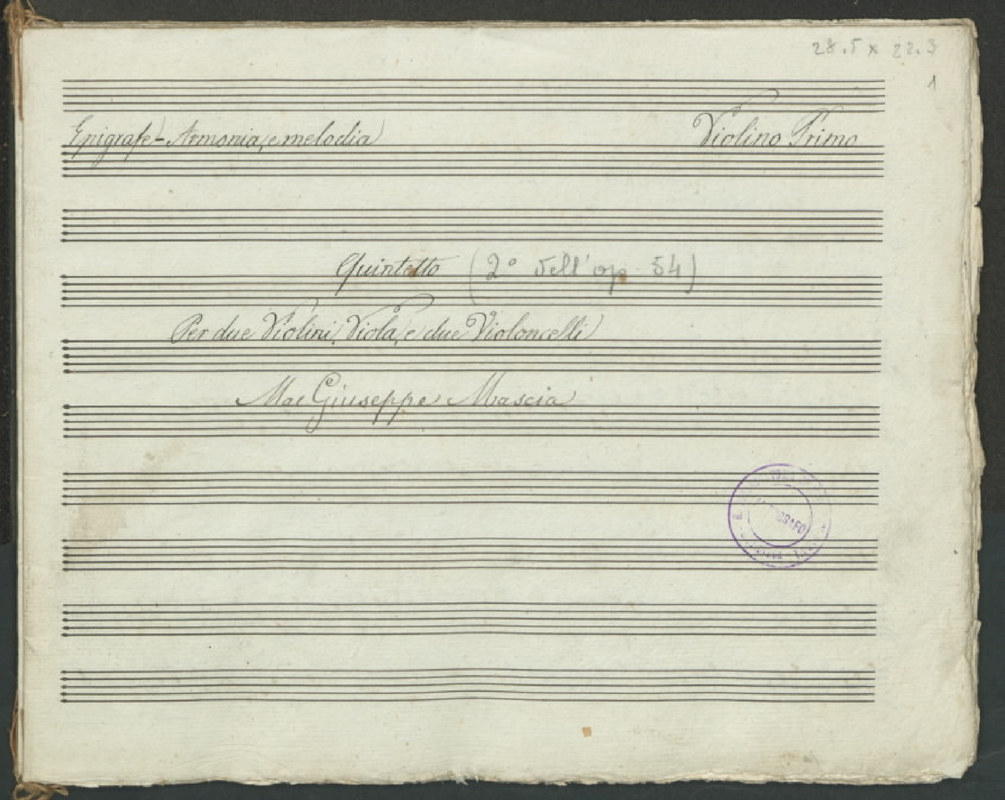 28.5 x 22.3
1
Epigrafe - Armonia, e melodia
Violino Primo
Quintetto (2° dell'op. 54)
Per due Violini, Viola, e due Violoncelli
Mae Giuseppe Mascia